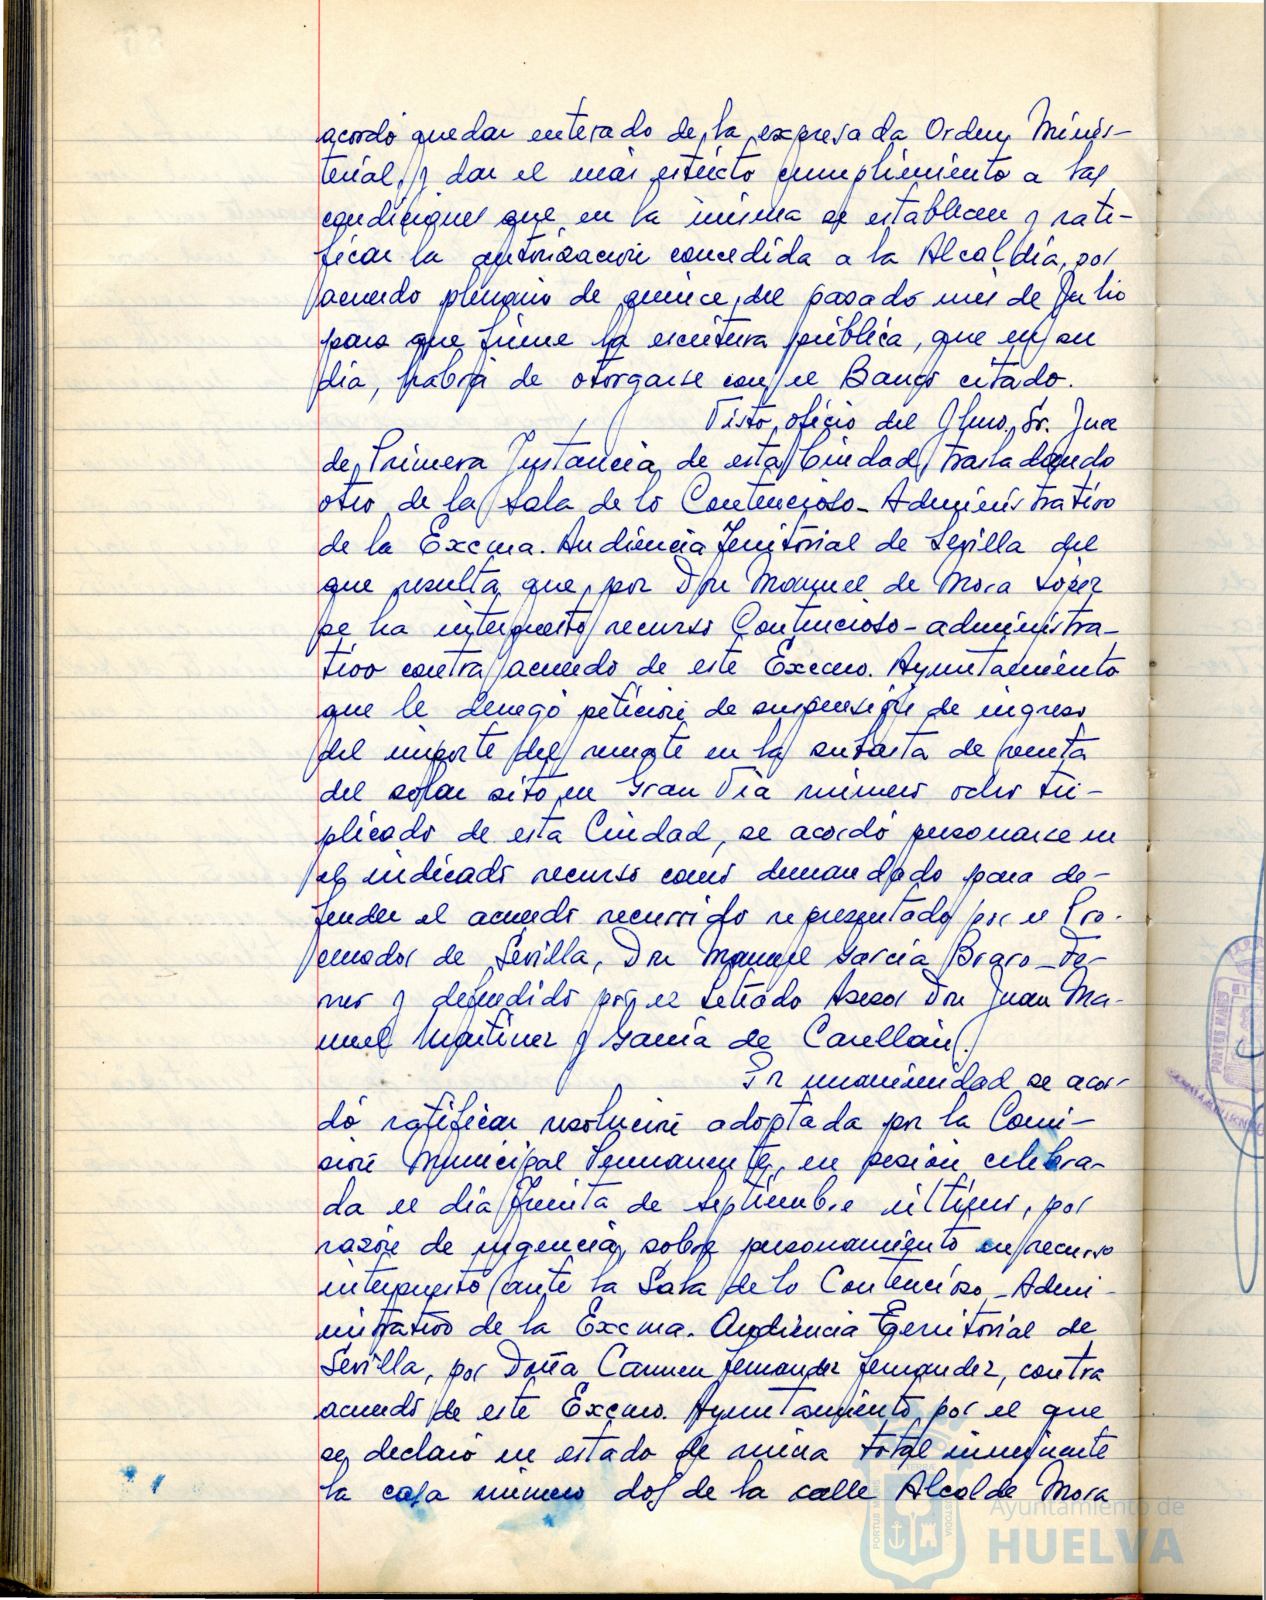 acordó quedar enterado de la expresada Orden Minis-
terial, y dar el más estricto cumplimiento a las
condiciones que en la misma se establecen y rati-
ficar la autorización concedida a la Alcaldía, por
acuerdo plenario de quince del pasado mes de Julio
para que firme la escritura pública, que en su
día, habrá de otorgarse con el Banco citado.
Visto oficio del Ilmo. Sr. Juez
de Primera Instancia de esta Ciudad, trasladando
otro de la Sala de lo Contencioso-Administrativo
de la Excma. Audiencia Territorial de Sevilla del
que resulta que por Don Manuel de Mora López
se ha interpuesto recurso Contencioso-administra-
tivo contra acuerdo de este Excmo. Ayuntamiento
que le denegó petición de suspensión de ingreso
del importe del remate en la subasta de venta
del solar sito en Gran Vía número ocho tri-
plicado de esta Ciudad, se acordó personarse en
el indicado recurso como demandado para de-
fender el acuerdo recurrido representado por el Pro-
curador de Sevilla, Don Manuel García Bravo-Fe-
rrer y defendido por el Letrado Asesor Don Juan Ma-
nuel Martínez y García de Casellan.
Por unanimidad se acor-
dó ratificar resolución adoptada por la Comi-
sión Municipal Permanente, en sesión celebra-
da el día treinta de septiembre último, por
razón de urgencia, sobre personamiento en recurso
interpuesto ante la Sala de lo Contencioso-Admi-
nistrativo de la Excma. Audiencia Territorial de
Sevilla, por Doña Carmen Fernandez Fernandez, contra
acuerdo de este Excmo. Ayuntamiento por el que
se declaró en estado de ruina total inminente
la casa número dos de la calle Alcalde Mora
Ayuntamiento de
HUELVA